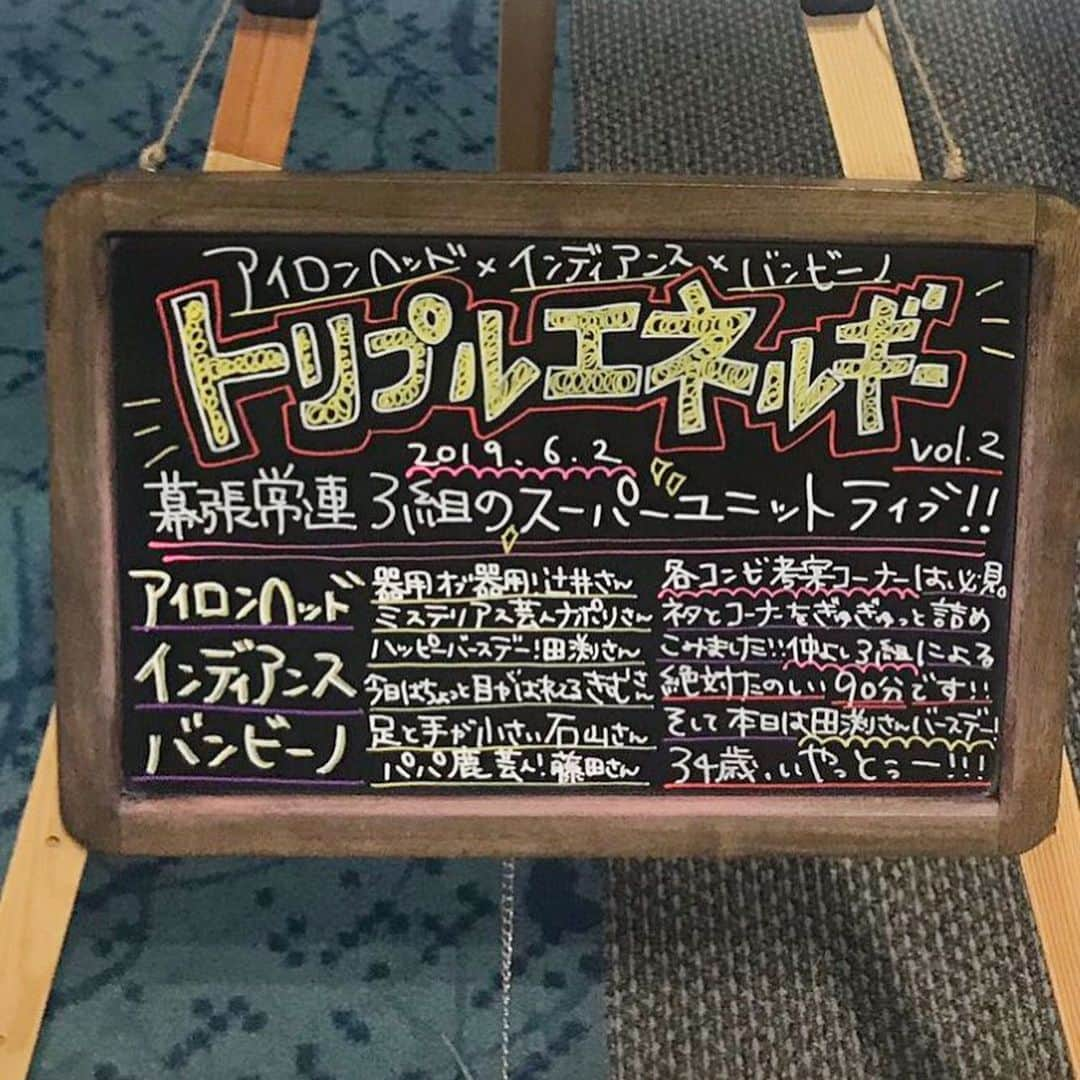 アイロンヘッド×インディアンス×バンビーノ
トリプルエネルギー
2019.6.2
vol.2
幕張常連3組のスーパーユニットライブ!!
アイロンヘッド
インディアンス
バンビーノ
器用オブ器用!辻井さん
ミステリアス芸人ナポリさん
ハッピーバースデー!田渕さん
今日はちょっと目がはれてるきむさん
足と手が小さい石山さん
パパ鹿芸人!藤田さん
各コンビ考案コーナーは、必見。
ネタとコーナーをぎゅぎゅっと詰め
こみました!!仲よし3組による
絶対たのしい90分です!!
そして本日は田渕さんバースデー!
34歳、いやっとぅー!!!